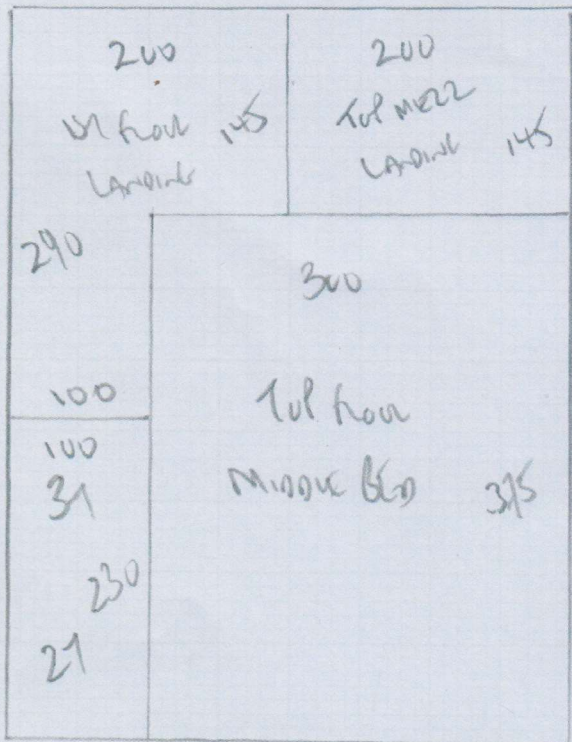 200
1st floor 145
LANDING
200
TOP MEZZ
LANDING 145
290
100
300
TOP floor
MIDDLE BED 375
100
31
230
21